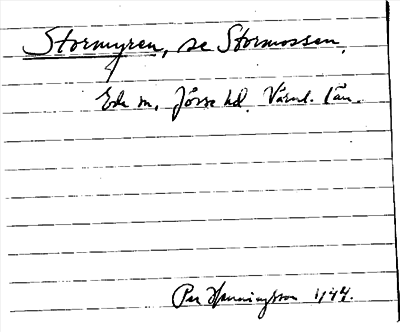 Stormyren, se Stormossen,
Eda sn, Jösse hd. Värml. län.
Per Henningsson 1944.